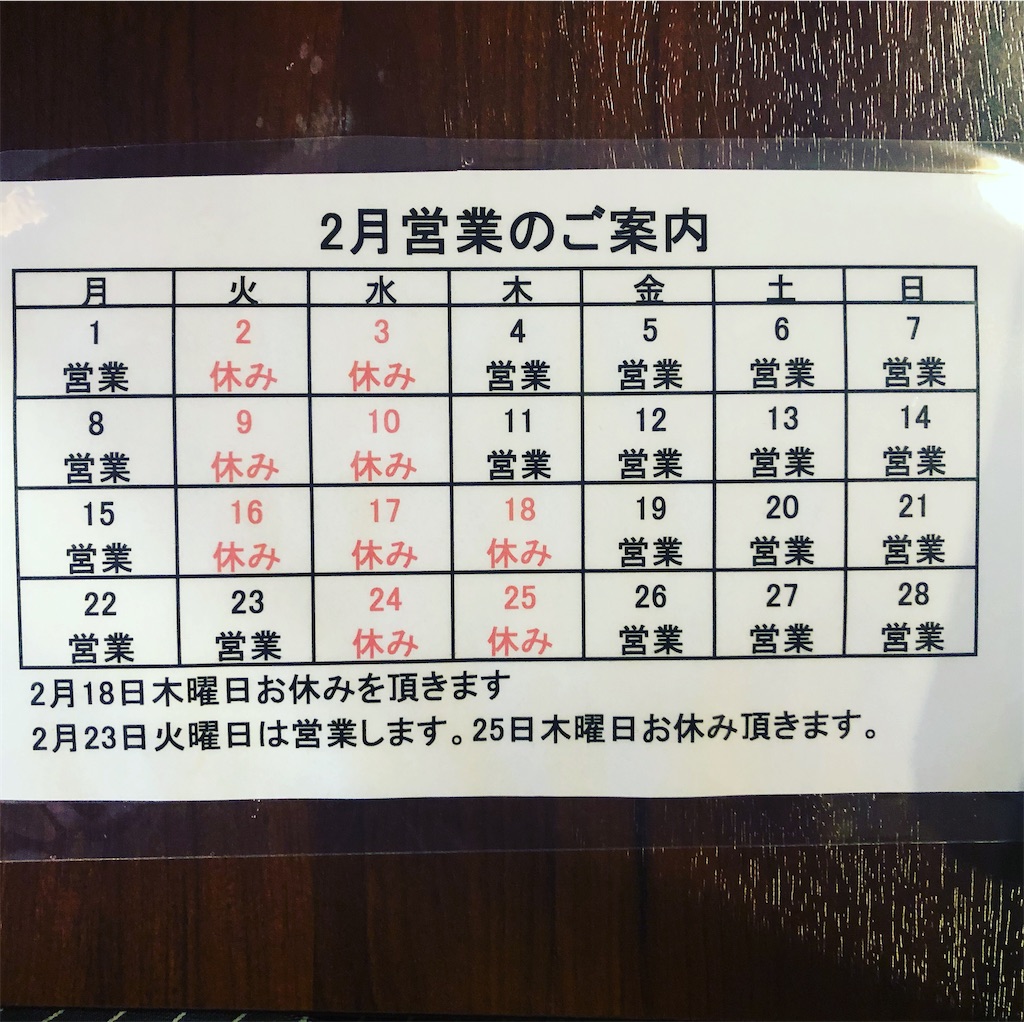 2月営業のご案内
月 火 水 木 金 土 日
1 2 3 4 5 6 7
営業 休み 休み 営業 営業 営業 営業
8 9 10 11 12 13 14
営業 休み 休み 営業 営業 営業 営業
15 16 17 18 19 20 21
営業 休み 休み 休み 営業 営業 営業
22 23 24 25 26 27 28
営業 営業 休み 休み 営業 営業 営業
2月18日木曜日お休みを頂きます
2月23日火曜日は営業します。25日木曜日お休み頂きます。